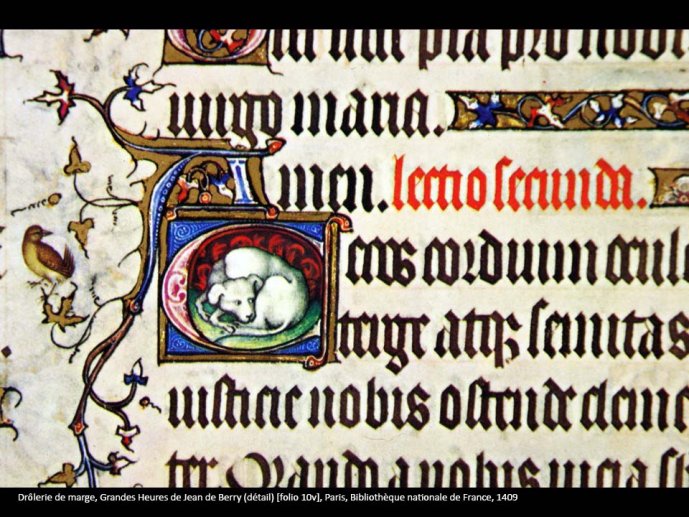 pia pro nobis
uirgo maria.
Amen. lectio secunda.
Cecos cordium ocul
terge atq3 semitas
iusticie nobis ostende cleme
ter nobis
Drôlerie de marge, Grandes Heures de Jean de Berry (détail) [folio 10v], Paris, Bibliothèque nationale de France, 1409